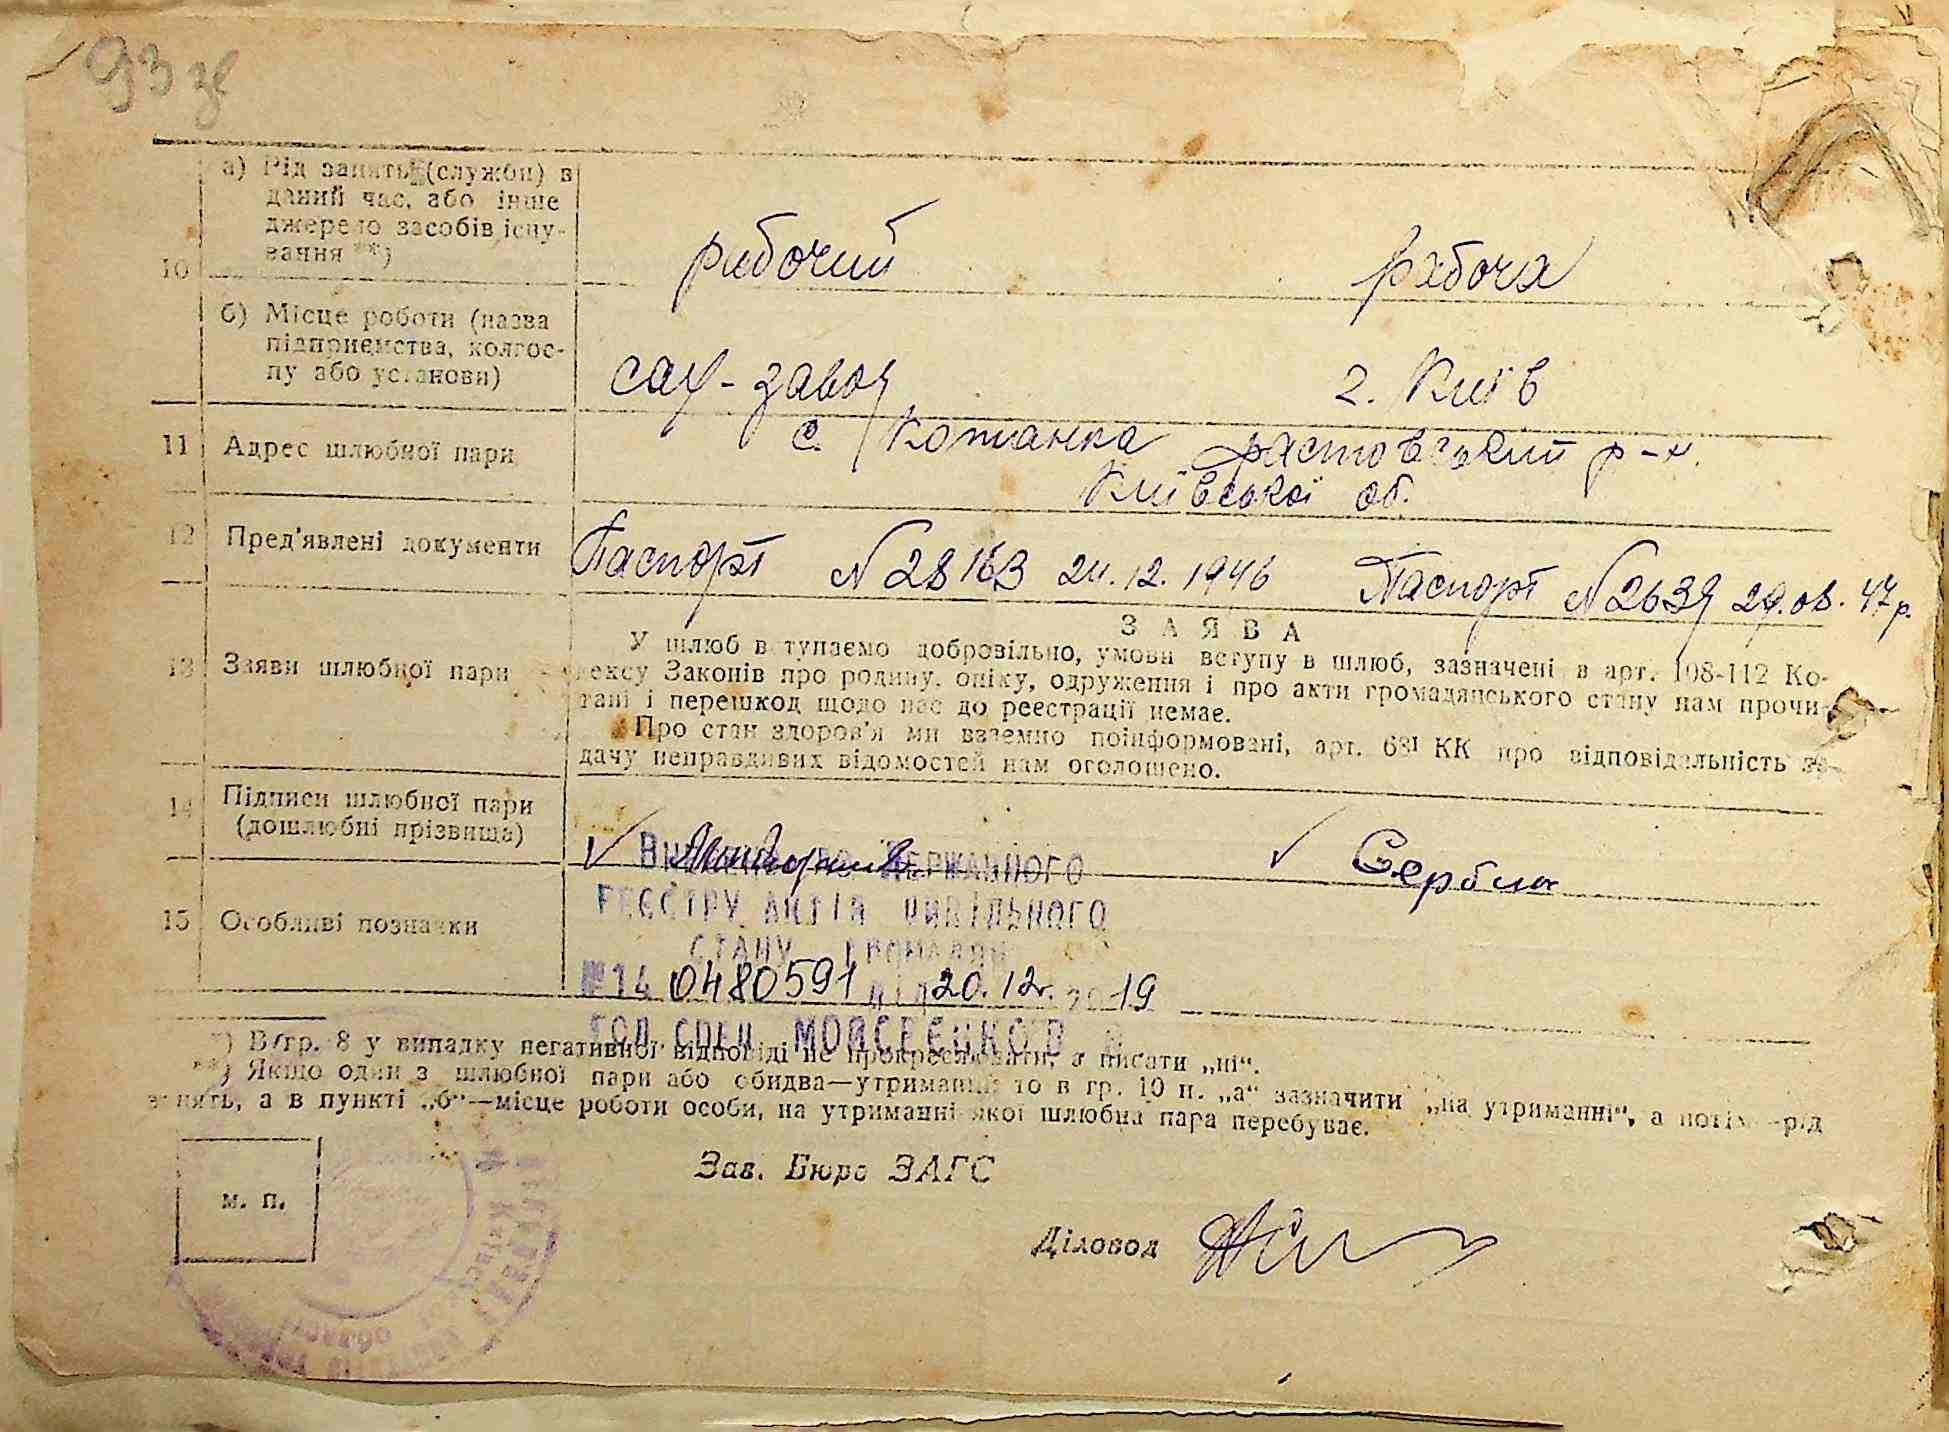 93 зв
а) Рід занять (служби) в
даний час, або інше
джерело засобів існу-
вання **)
10
рабочий рабоча
б) Місце роботи (назва
підприємства, колгос-
пу або установи)
сах-завод г. Київ
11 Адрес шлюбної пари
с. Кожанка фастовський р-н.
Київської об.
12 Пред'явлені документи
Паспорт N 28163 24.12.1946 Паспорт N 2639 29.08.47 р.
ЗАЯВА
13 Заяви шлюбної пари
У шлюб вступаємо добровільно, умови вступу в шлюб, зазначені в арт. 108-112 Ко-
дексу Законів про родину, опіку, одруження і про акти громадянського стану нам прочи-
тані і перешкод щодо нас до реєстрації немає.
Про стан здоров'я ми взаємно поінформовані, арт. 68¹ КК про відповідальність за
дачу неправдивих відомостей нам оголошено.
14 Підписи шлюбної пари
(дошлюбні прізвища)
Сербин
ДЕРЖАВНОГО
РЕЄСТРУ АКТІВ ЦИВІЛЬНОГО
СТАНУ ГРОМАДЯН
15 Особливі позначки
№14 0480591 від 20.12. 2019
ГОЛ.СПЕЦ. МОЙСЕЄНКО
*) В гр. 8 у випадку негативної відповіді не прокреслювати, а писати „ні“.
**) Якщо один з шлюбної пари або обидва—утриманці, то в гр. 10 п. „а“ зазначити „на утриманні“, а потім—рід
занять, а в пункті „б“—місце роботи особи, на утриманні якої шлюбна пара перебуває.
м. п.
Зав. Бюро ЗАГС
Діловод